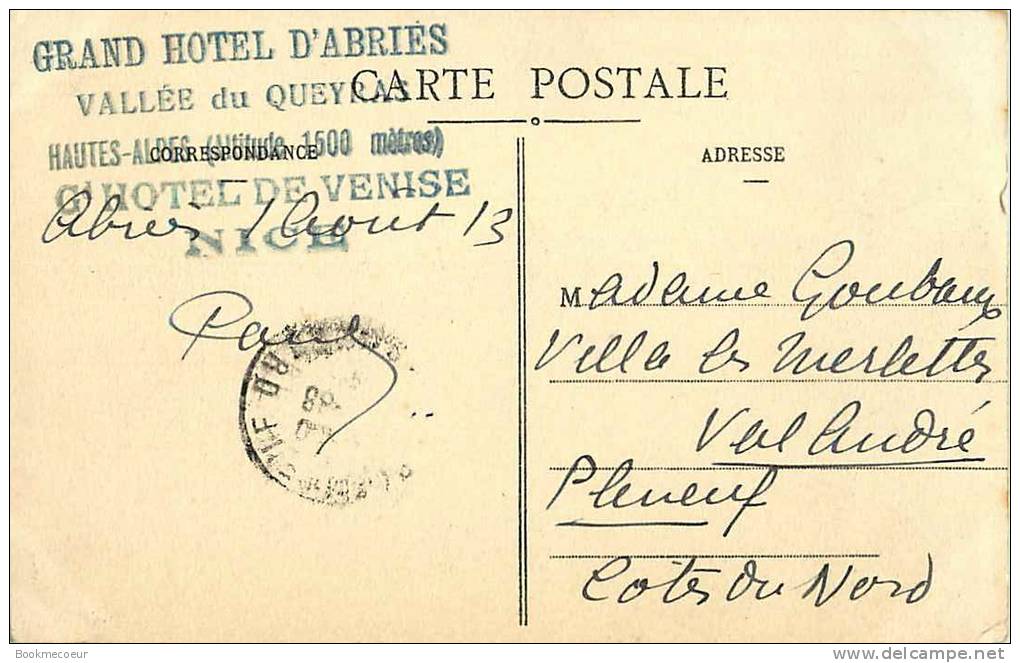 GRAND HOTEL D'ABRIÈS
VALLÉE du QUEYRAS
HAUTES-ALPES (Altitude 1500 mètres)
Gd HOTEL DE VENISE
NICE
CARTE POSTALE
CORRESPONDANCE
Abries 1 Aout 13
Paul
ADRESSE
Madame Goubaux
Villa les Merlettes
Val André
Pleneuf
Cotes du Nord
Bookmecoeur
www.delcampe.net